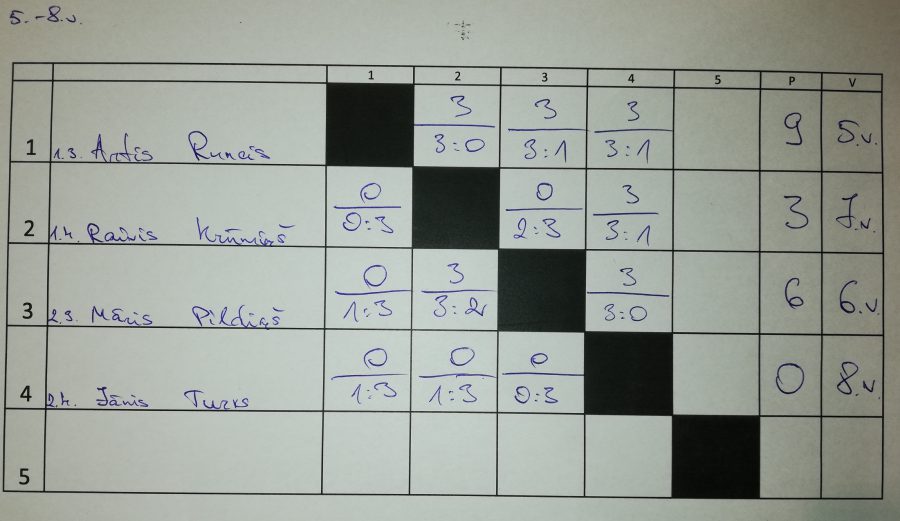 5.-8.v.
1 2 3 4 5 P V
1 1.3. Artis Runcis 3 3:0 3 3:1 3 3:1 9 5.v.
2 1.4. Raivis Krūmiņš 0 0:3 0 2:3 3 3:1 3 7.v.
3 2.3. Māris Pildiņš 0 1:3 3 3:2 3 3:0 6 6.v.
4 2.4. Jānis Turks 0 1:3 0 1:3 0 0:3 0 8.v.
5